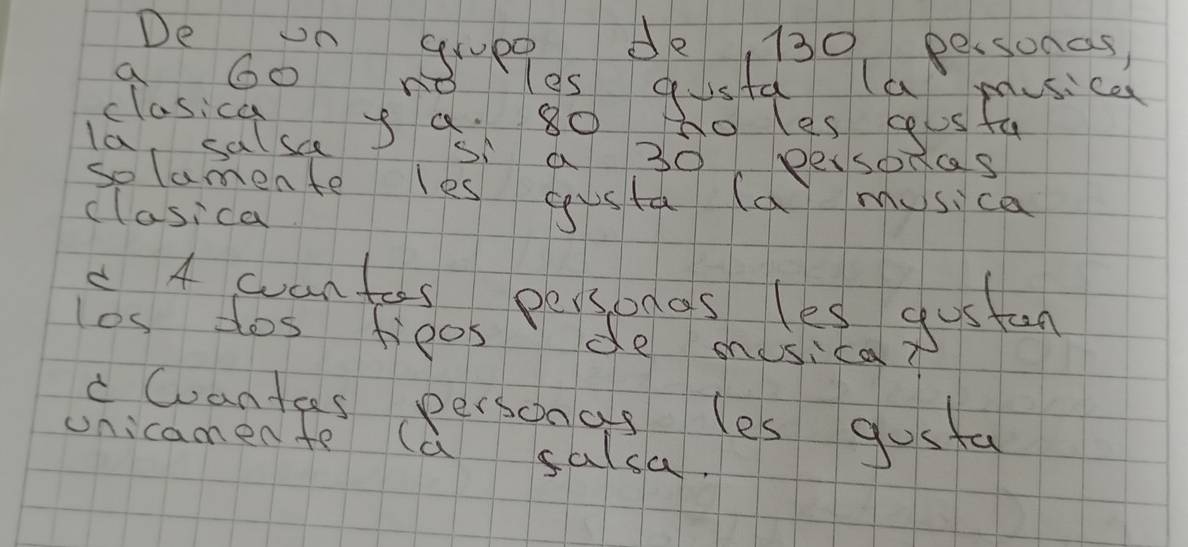 De un grupo de 130 personas,
a 60 no les gusta la musica
clasica y a 80 no les gusta
la salsa si a 30 personas
solamente les gusta la musica
clasica
¿ A cuantas personas les gustan
los dos tipos de musica?
¿ Cuantas personas les gusta
unicamente la salsa.